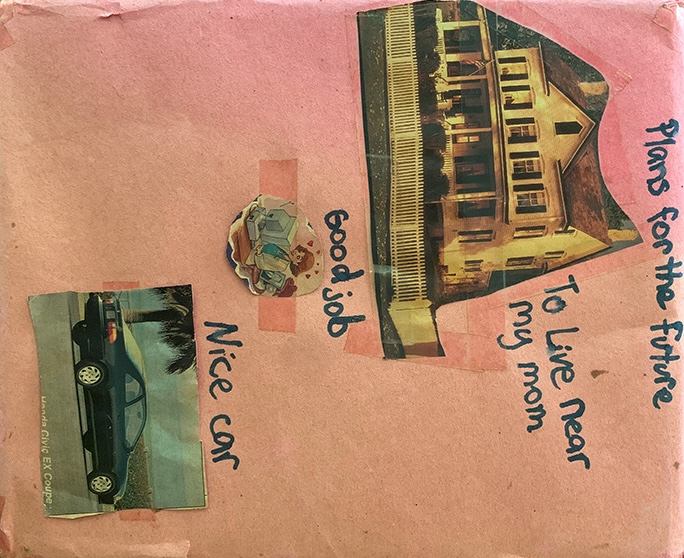 Plans for the future
To Live near
my mom
Good job
Nice car
Honda Civic EX Coupe